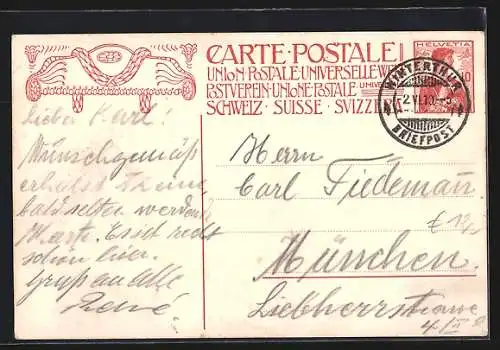 CARTE · POSTALE
UNION POSTALE UNIVERSELLE WELT
POSTVEREIN · UNIONE POSTALE UNIVER
SCHWEIZ · SUISSE · SVIZZERA
HELVETIA
10
WINTERTHUR
2.VI.10
BRIEFPOST
Lieber Karl!
Wunschgemäß
erhälst Du eine
bald selten werdende
Karte. Es ist recht
schön hier.
Gruß an alle
René.
Herrn
Carl Fiedeman
München
Liebherrstrasse
4/II